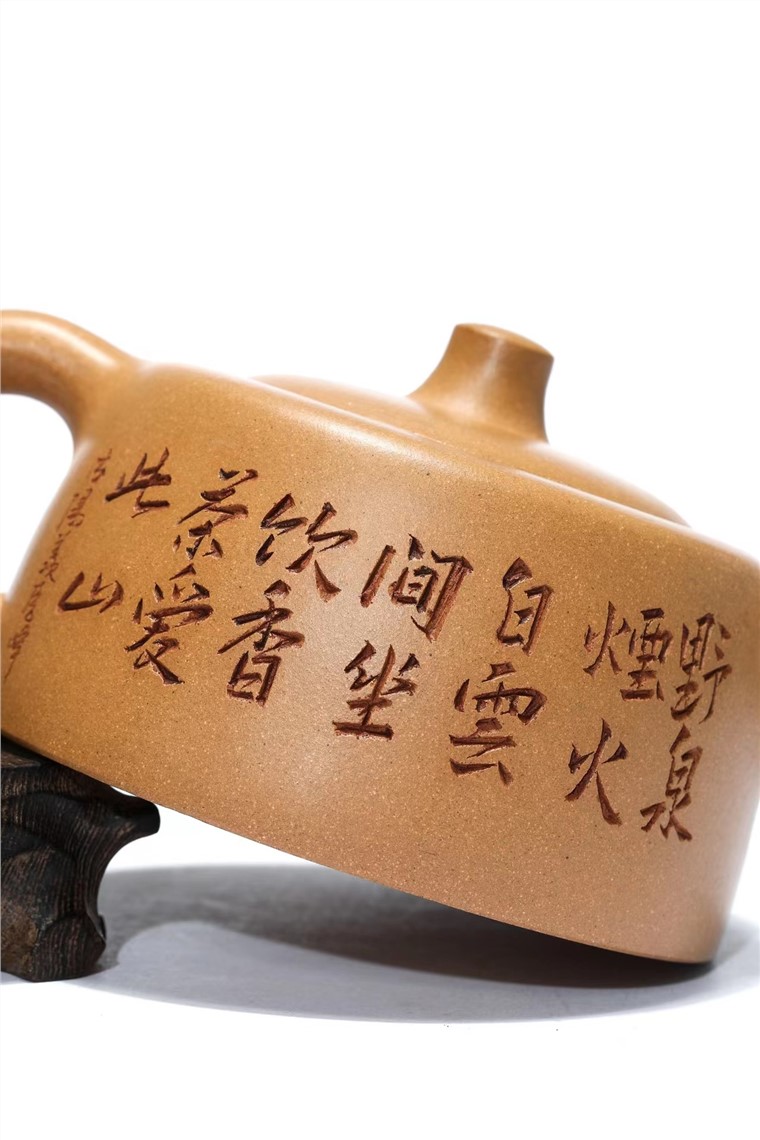 野泉
煙火
白雲
间坐
饮香
茶愛
此山